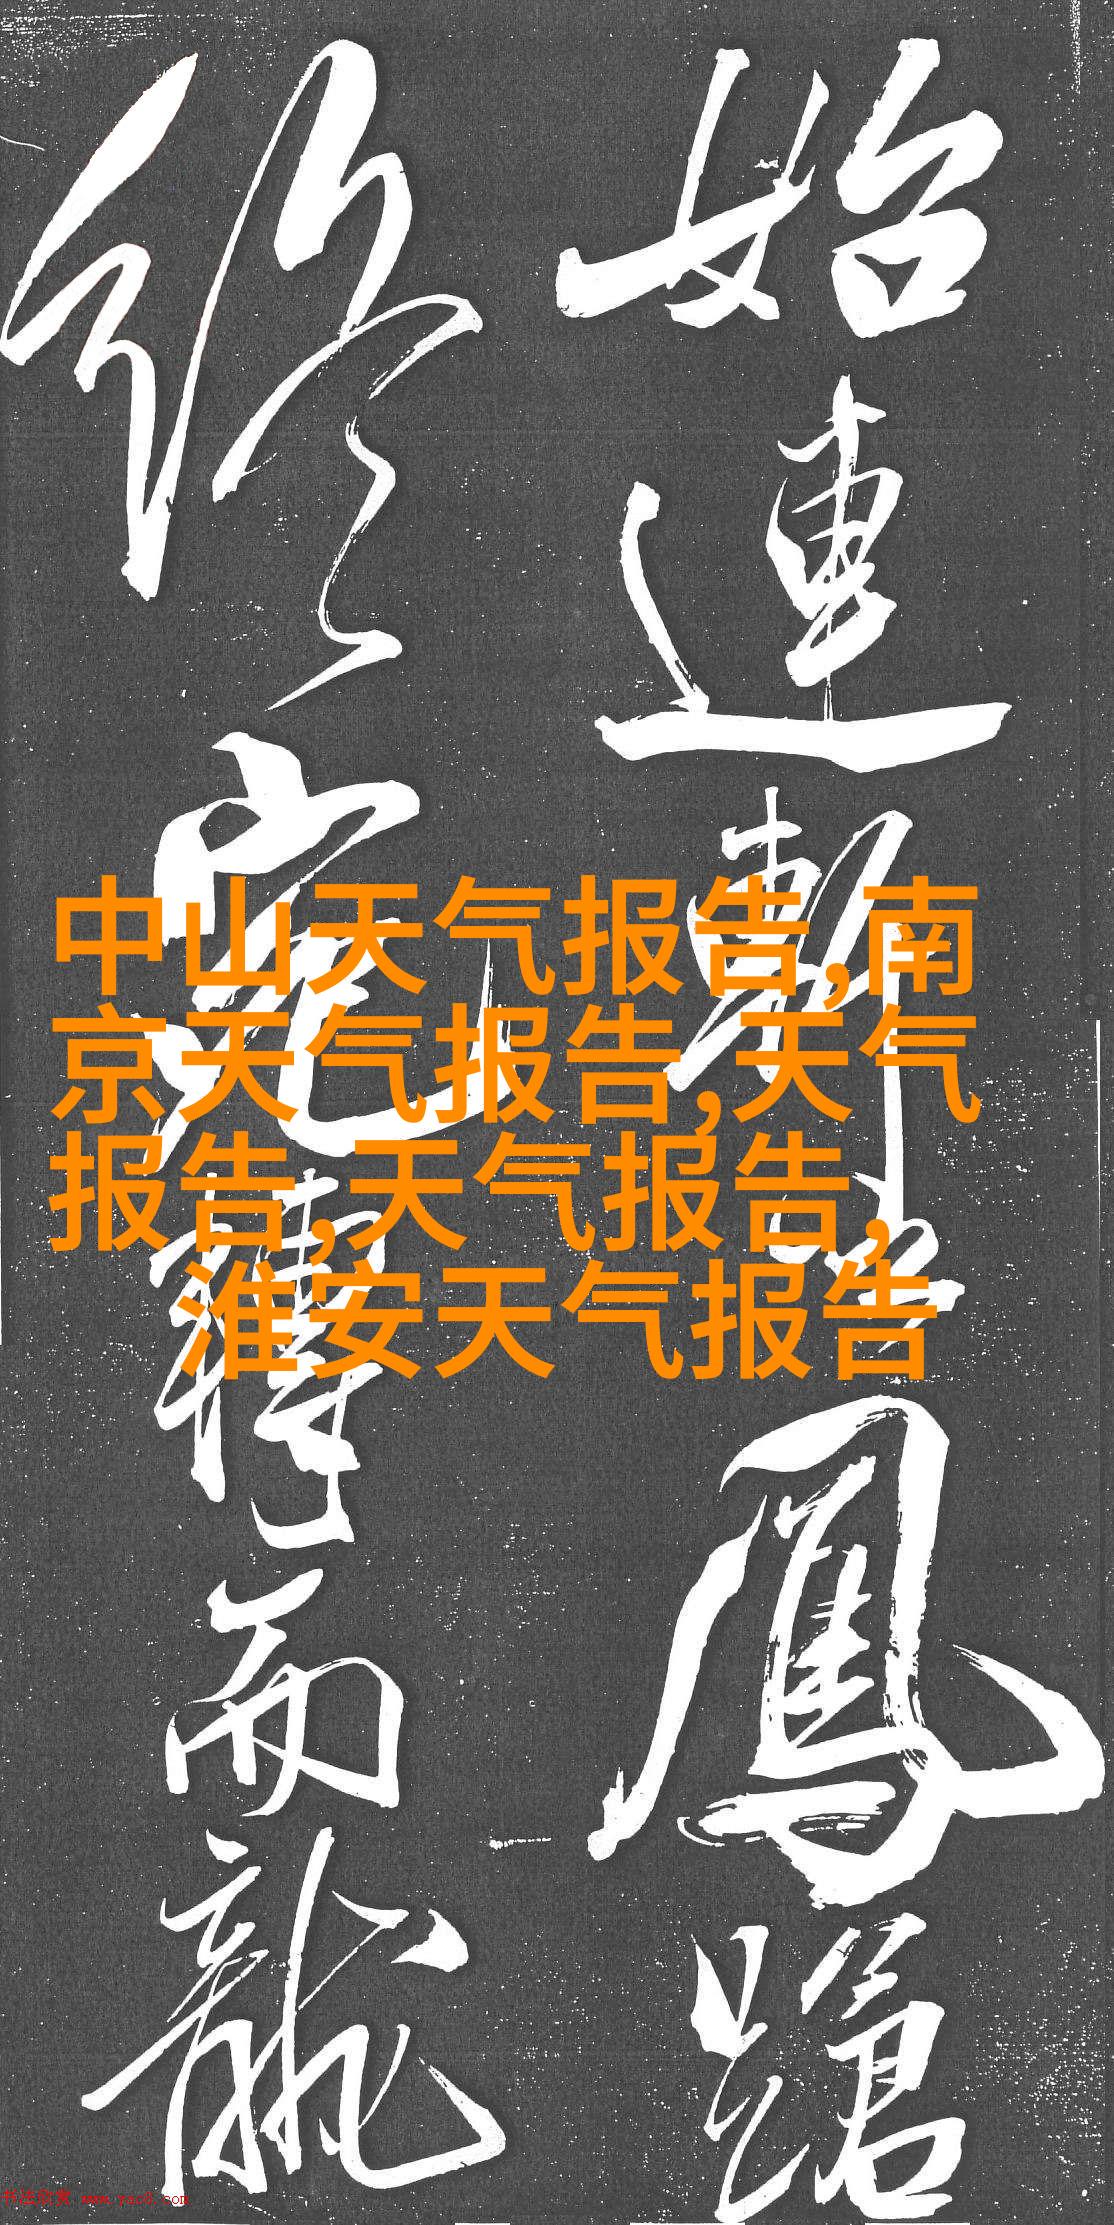 中山天气报告,南
京天气报告,天气
报告,天气报告,
淮安天气报告
始连轩𦐂鳳蹌
終宛轉而龍
书法欣赏 www.yac8.com